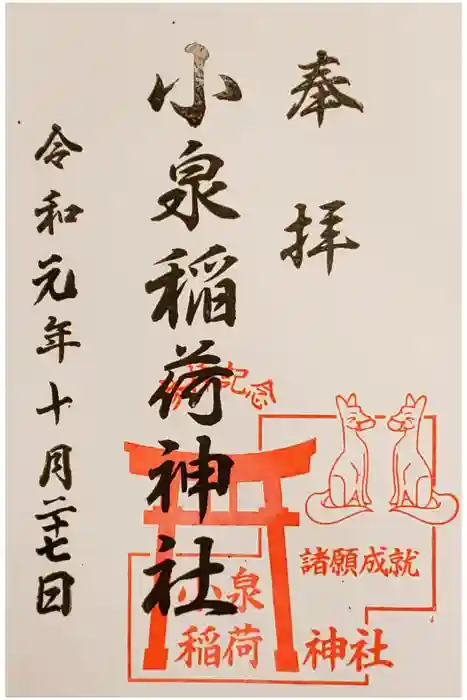 奉拝
小泉稲荷神社
令和元年十月二十七日
参拝記念
諸願成就
小泉
稲荷神社